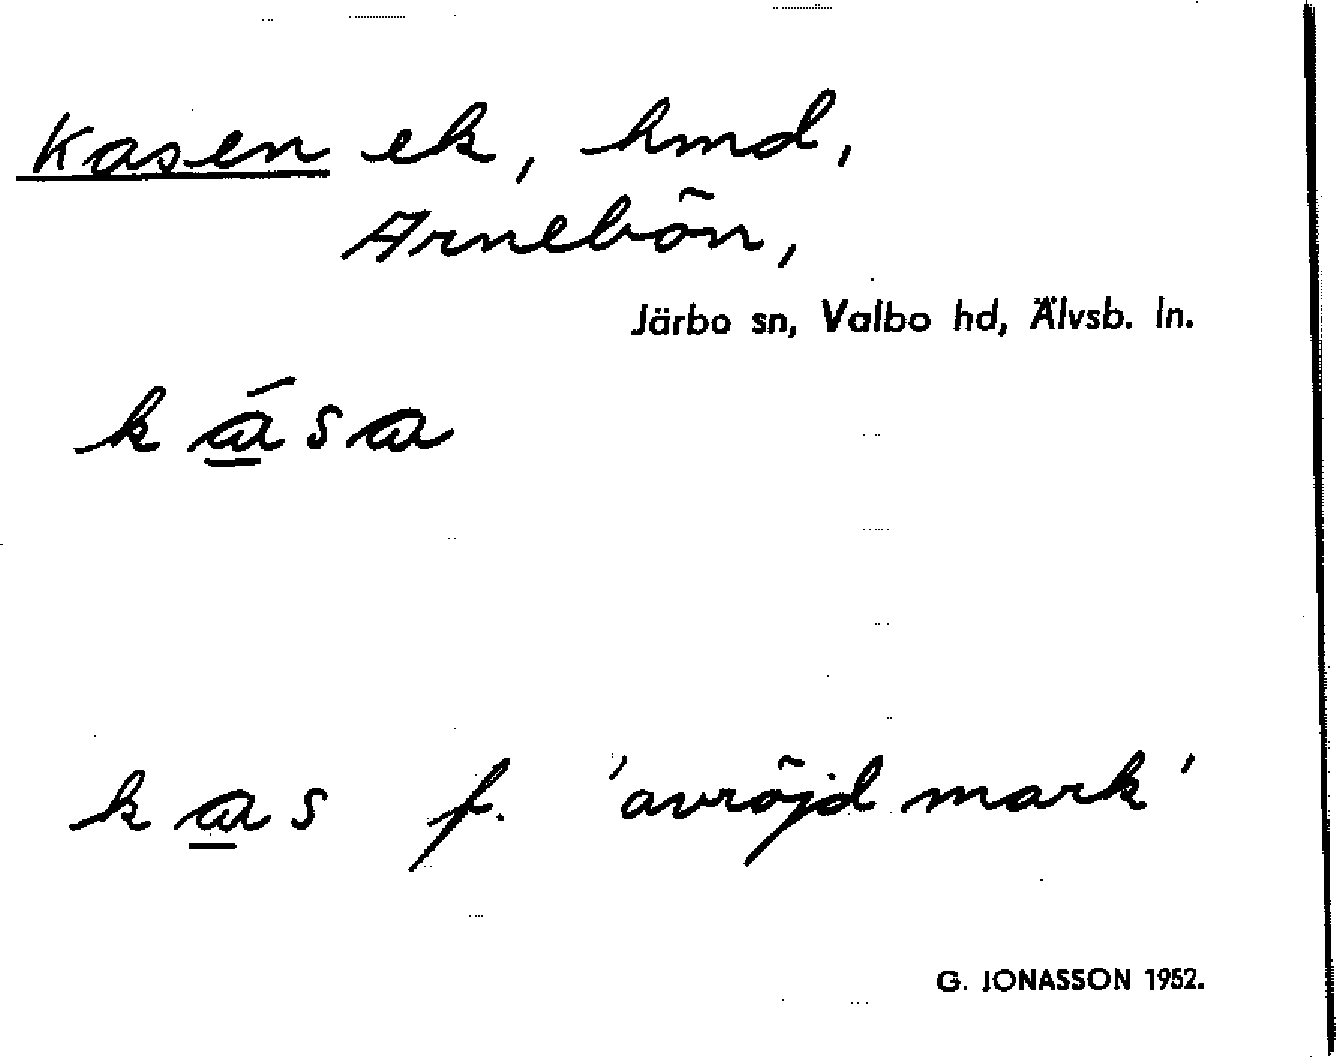 Kasen ek, hmd,
Arnebön,
Järbo sn, Valbo hd, Älvsb. ln.
kása
kas f. 'avröjd mark'
G. JONASSON 1952.